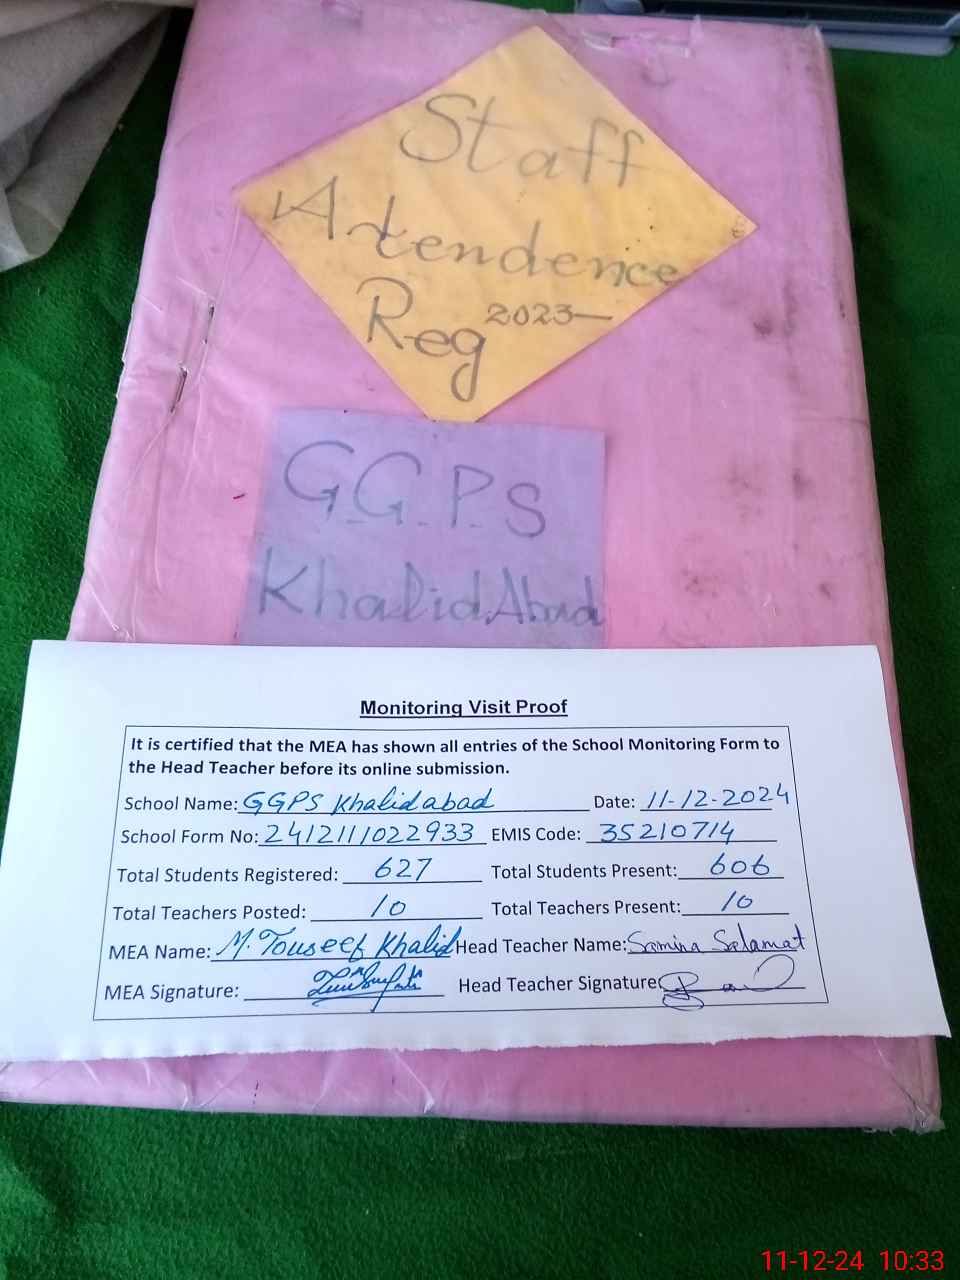 Staff
Attendence
Reg 2023—
G.G.P.S
Khalid Abad
Monitoring Visit Proof
It is certified that the MEA has shown all entries of the School Monitoring Form to
the Head Teacher before its online submission.
School Name: GGPS Khalidabad Date: 11-12-2024
School Form No: 2412111022933 EMIS Code: 35210714
Total Students Registered: 627 Total Students Present: 606
Total Teachers Posted: 10 Total Teachers Present: 10
MEA Name: M. Touseef Khalid Head Teacher Name: Samina Salamat
MEA Signature: Head Teacher Signature:
11-12-24 10:33